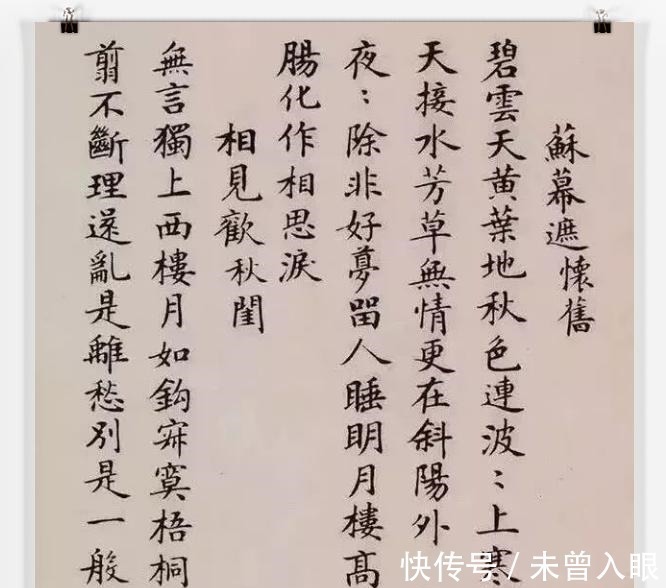 蘇幕遮懷舊
碧雲天黄葉地秋色連波〻上寒
天接水芳草無情更在斜陽外
夜〻除非好夢留人睡明月樓高
腸化作相思淚
相見歡秋閨
無言獨上西樓月如鈎寂寞梧桐
翦不斷理還亂是離愁別是一般
快传号 / 未曾入眼